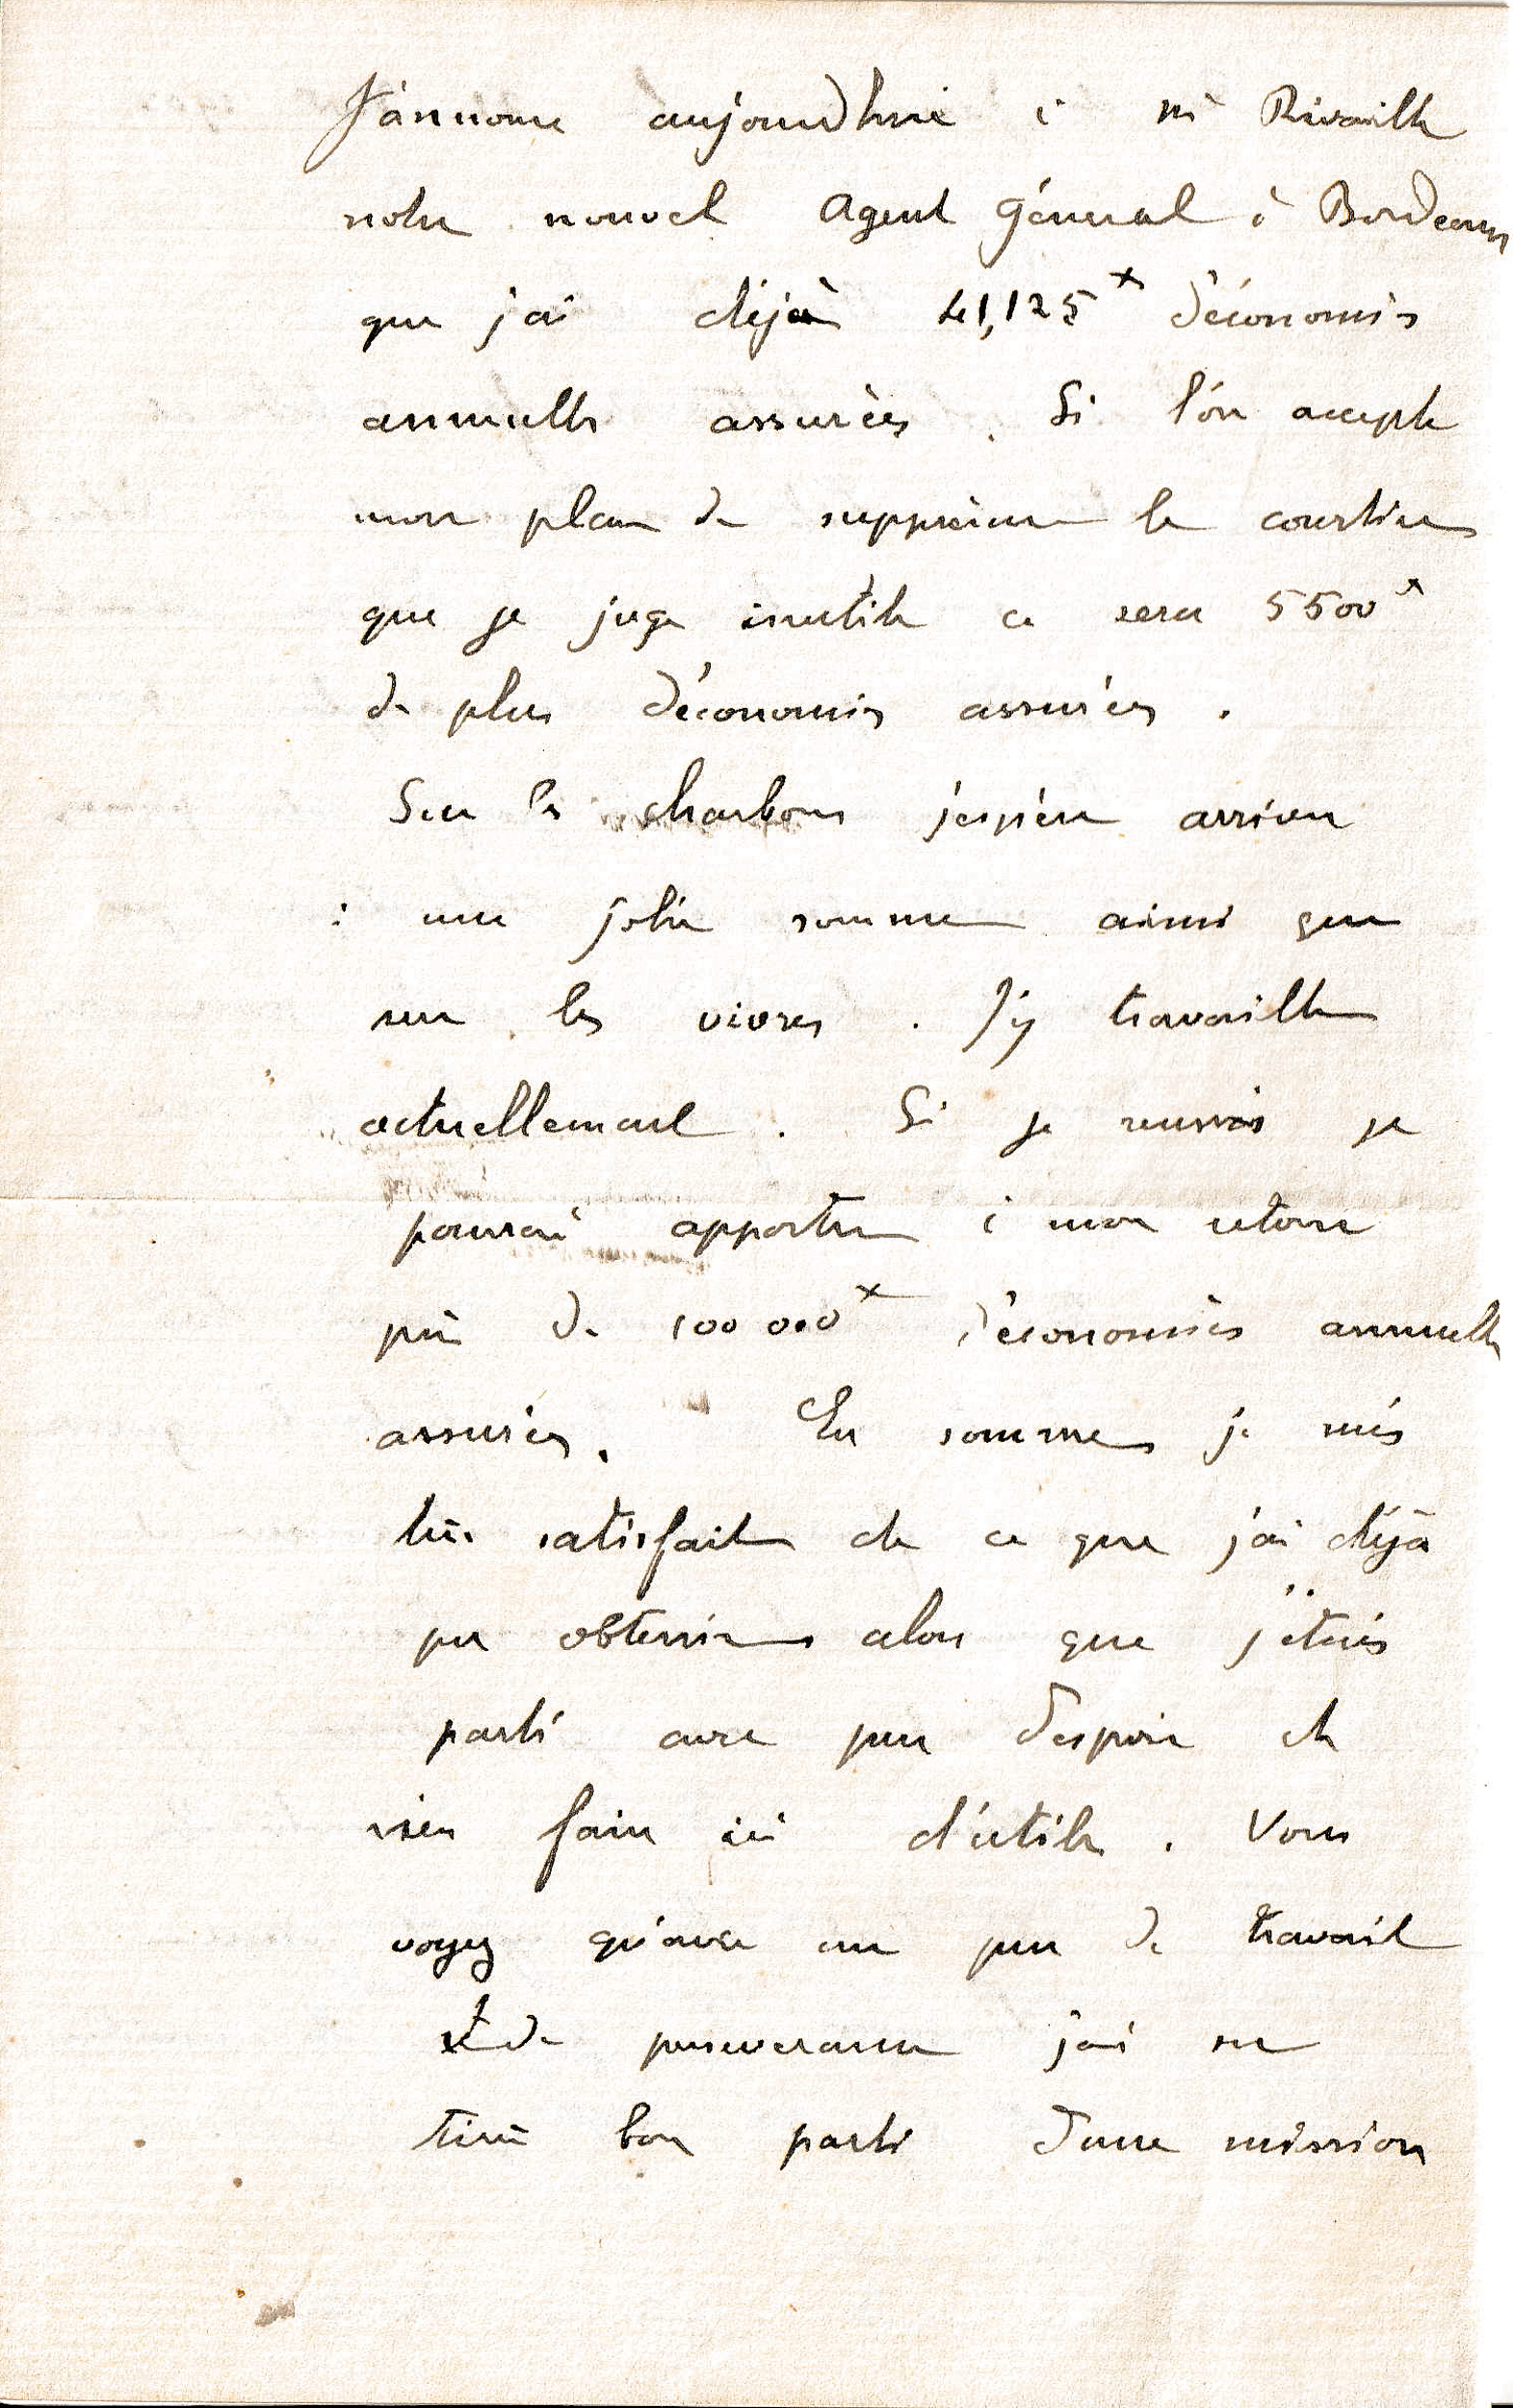 J'annonce aujourd'hui à Mr Rivaille
notre nouvel Agent Général à Bordeaux
que j'ai déjà 41,125 x d'économies
annuelles assurées. Si l'on accepte
mon plan de supprimer le courtier
que je juge inutile ce sera 5500 x
de plus d'économies assurées.
Sur les charbons j'espère arriver
à une jolie somme ainsi que
sur les vivres. J'y travaille
actuellement. Si je reussis je
pourrai apporter à mon retour
près de 100 000 x d'économies annuelles
assurées. En somme je suis
très satisfait de ce que j'ai déjà
pu obtenir alors que j'étais
parti avec peu d'espoir de
rien faire ici d'utile. Vous
voyez qu'avec un peu de travail
et de perseverance j'ai su
tirer bon parti d'une mission